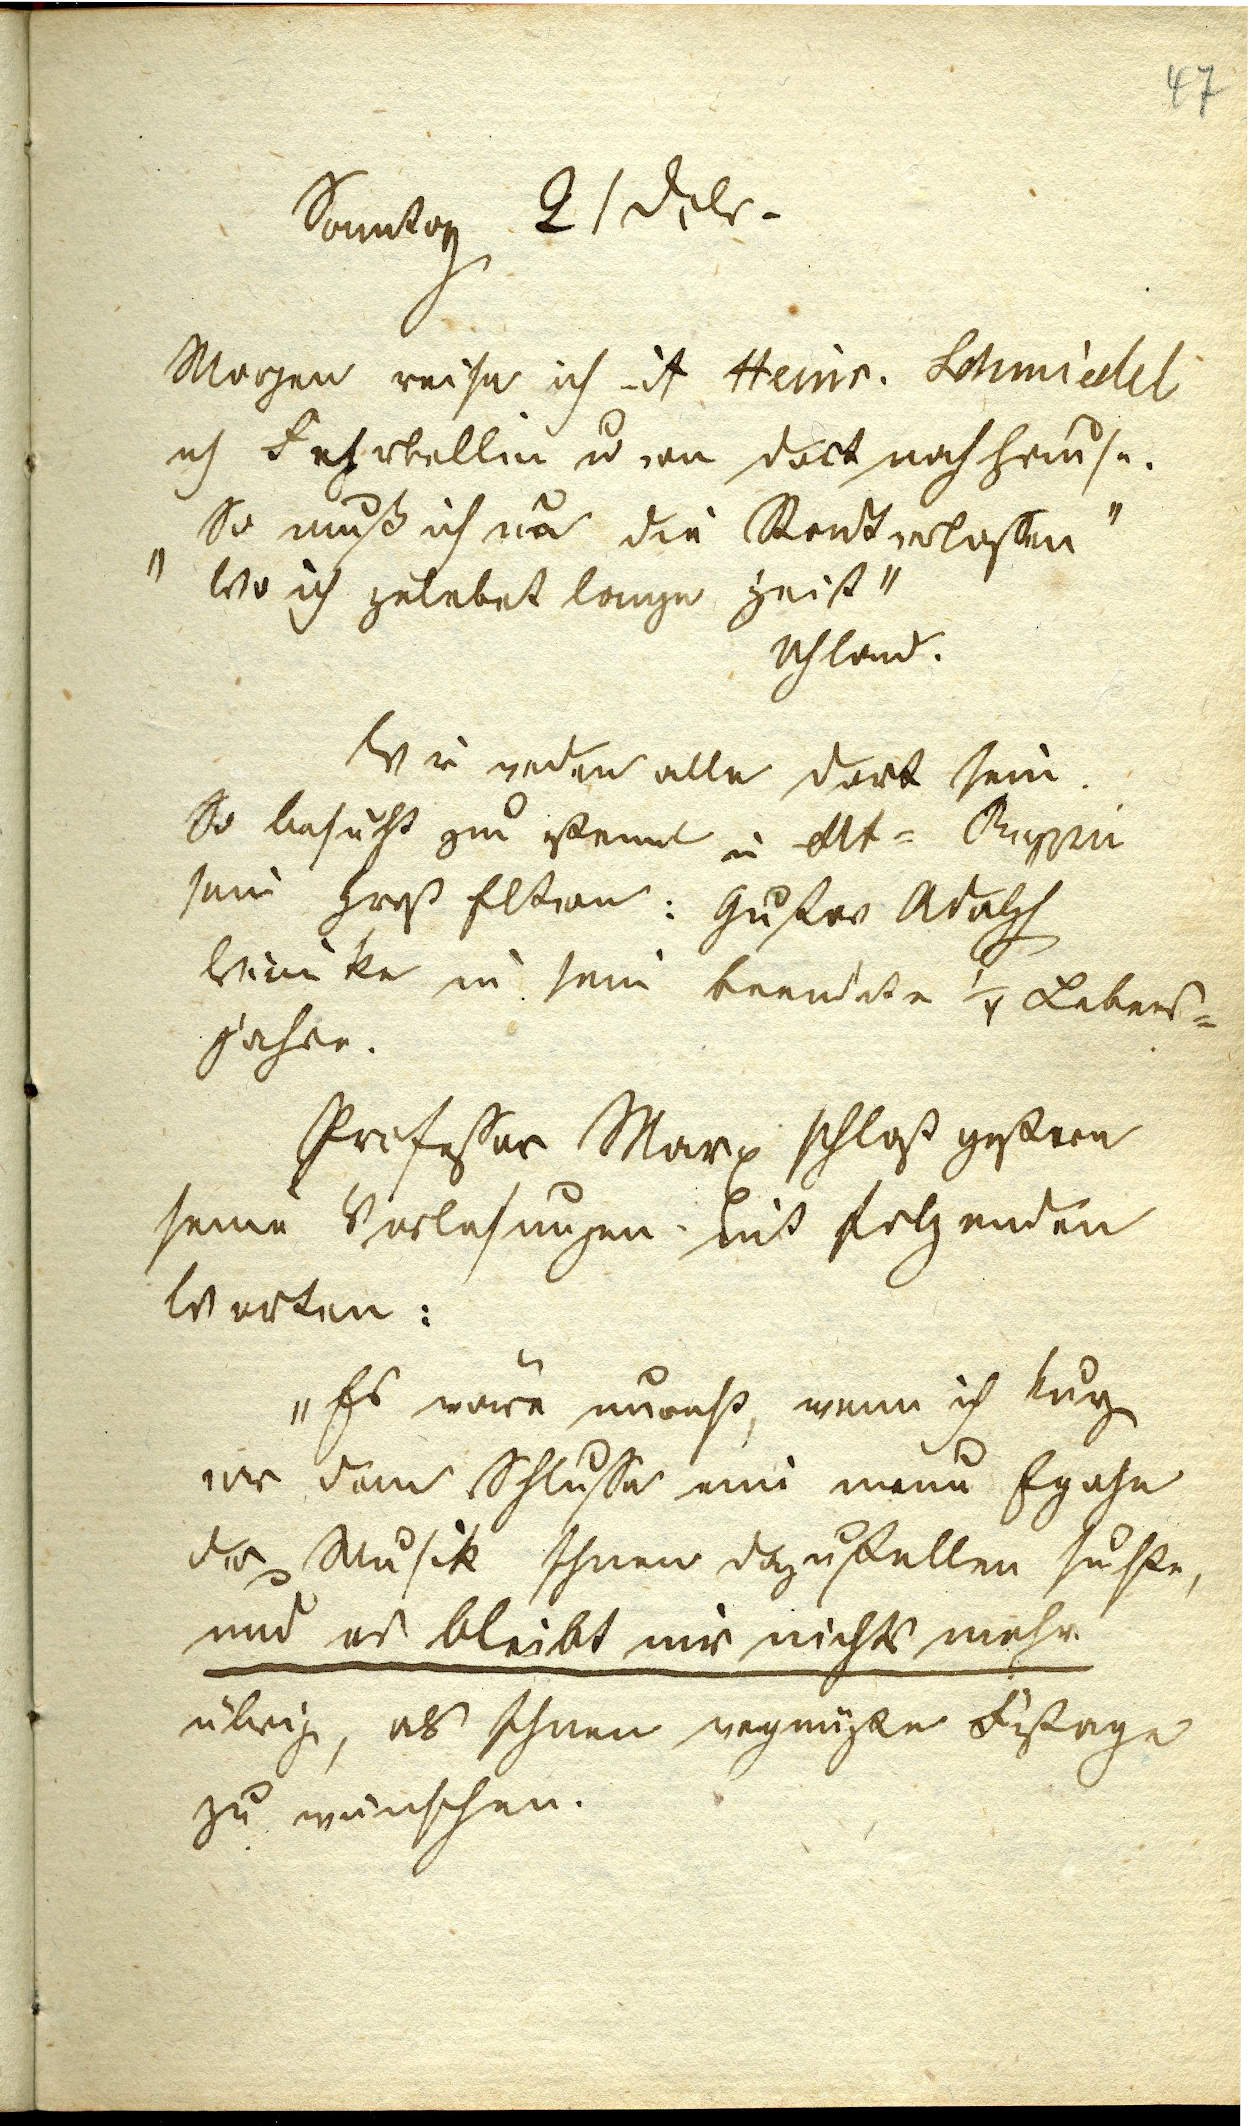 47
Sonntag 21 Dcbr.
Morgen reise ich mit Heinr. Schmiedel
nch Fehrbellin u von dort nach Hause.
So muß ich nu die Stadt verlassen"
"Wo ich gelebet lange Zeit"
Uhland.
Wir werden alle dort sein.
So besucht zum in Alt= Ruppin
sein Groß Eltern: Gustav Adolph
in sein beendeten 1/4 Lebens=
jahre.
Professor Marx schloß gestern
seine Vorlesungen mit folgenden
Worten:
"Es wäre unrecht, wenn ich kurz
vor dem Schlusse eine neue Epoche
der Musik Ihnen dazustellen suchte,
und es bleibt mir nichts mehr
übrig, als Ihnen vergnügte Festage
zu wünschen.